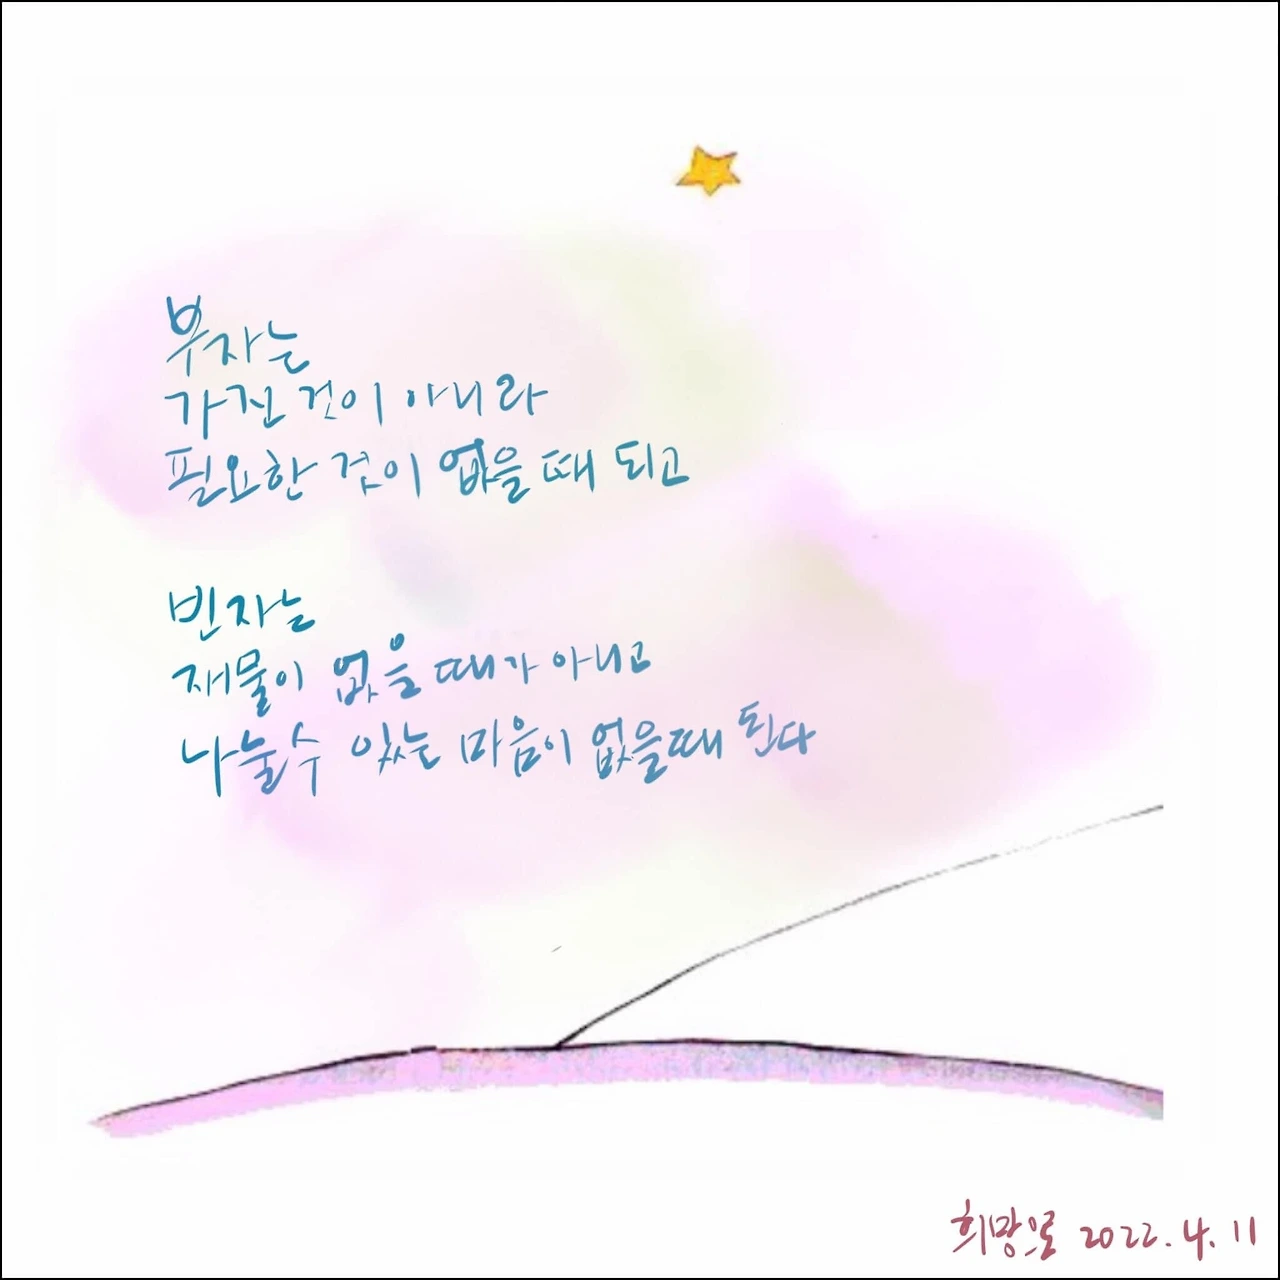 부자는
가진 것이 아니라
필요한 것이 없을 때 되고
빈자는
재물이 없을 때가 아니고
나눌수 있는 마음이 없을때 된다
희망으로 2022.4.11